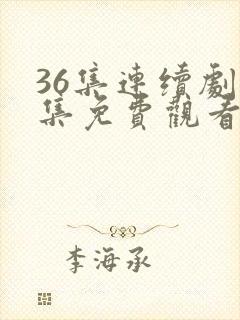 36集連續劇
集免費觀看
李海承